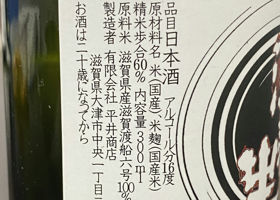 品目 日本酒 アルコール分16度
原材料名 米(国産)、米麹(国産米)
精米歩合60% 内容量300ml
原料米 滋賀県産滋賀渡船六号100%
製造者 有限会社 平井商店
滋賀県大津市中央一丁目二
お酒は二十歳になってから